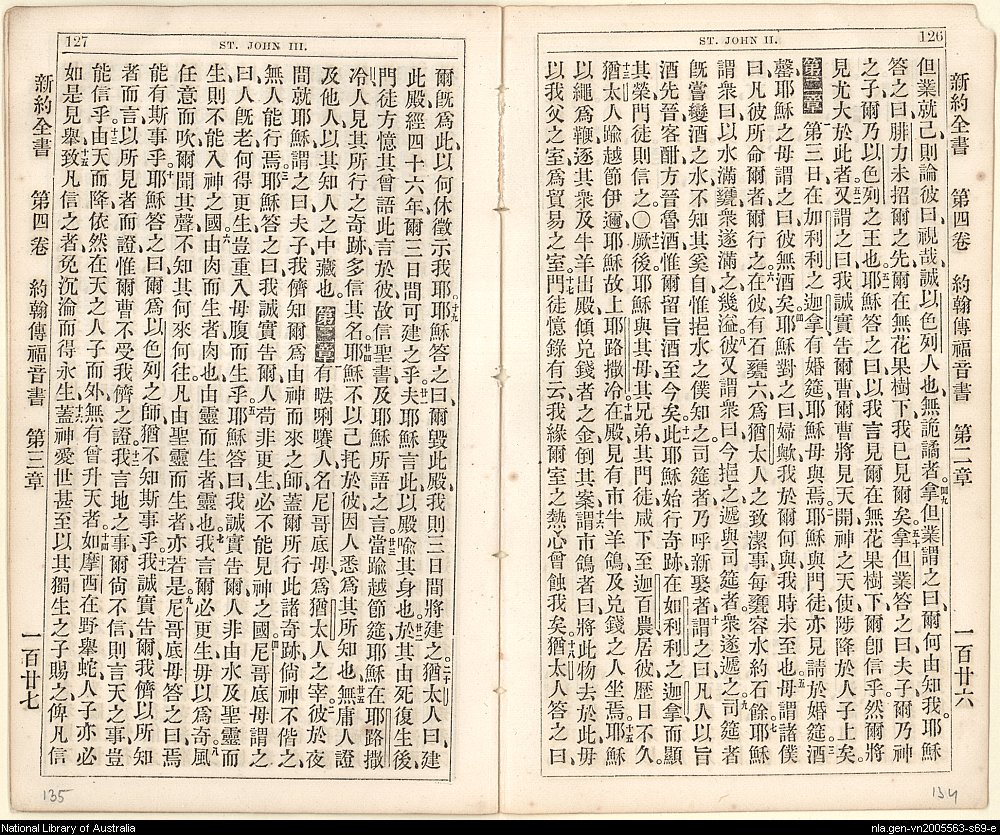 126
ST. JOHN II.
新約全書 第四卷 約翰傳福音書 第二章 一百廿六
但業就己、則論彼曰、視哉、誠以色列人也、無詭譎者。拿但業謂之曰、爾何由知我。耶穌
答之曰、腓力未招爾之先、爾在無花果樹下、我已見爾矣。拿但業答之曰、夫子、爾乃神
之子、爾乃以色列之王也。耶穌答之曰、以我言見爾在無花果樹下、爾卽信乎、然爾將
見尤大於此者。又謂之曰、我誠實告爾曹、爾曹將見天開、神之天使陟降於人子上矣。
第二章 第三日在加利利之迦拿有婚筵、耶穌母與焉。耶穌與門徒亦見請於婚筵。酒
罄、耶穌之母謂之曰、彼無酒矣。耶穌對之曰、婦歟、我於爾何與、我時未至也。母謂諸僕
曰、凡彼所命爾者、爾行之。在彼有石甕六、爲猶太人之致潔事、每甕容水約石餘。耶穌
謂衆曰、以水滿甕、衆遂滿之幾溢。彼又謂衆曰、今挹之、遞與司筵者、衆遂遞之。司筵者
旣嘗變酒之水、不知其奚自、惟挹水之僕知之、司筵者乃呼新娶者、謂之曰、凡人以旨
酒先晉、客酣、方晉魯酒、惟爾留旨酒至今矣。此耶穌始行奇跡、在如利利之迦拿、而顯
其榮、門徒則信之。〇厥後耶穌與其母、其兄弟、其門徒、咸下至迦百農、居彼歷日不久。
猶太人踰越節伊邇、耶穌故上耶路撒冷。在殿見有市牛羊鴿、及兑錢之人坐焉。耶穌
以繩爲鞭、逐其衆及牛羊出殿、傾兑錢者之金、倒其案。謂市鴿者曰、將此物去、於此毋
以我父之室、爲貿易之室。門徒憶錄有云、我緣爾室之熱心、曾蝕我矣。猶太人答之曰、
134
127
ST. JOHN III.
爾旣爲此、以何休徵示我耶。耶穌答之曰、爾毀此殿、我則三日間將建之。猶太人曰、建
此殿、經四十六年、爾三日間可建之乎。夫耶穌言此、以殿喩其身也。於其由死復生後、
門徒方憶其曾語此言於彼、故信聖書及耶穌所語之言。當踰越節筵、耶穌在耶路撒
冷、人見其所行之奇跡、多信其名。耶穌不以己托於彼、因人悉爲其所知也。無庸人證
及他人、以其知人之中藏也。 第三章 有𠵽唎㘔人、名尼哥底母、爲猶太人之宰。彼於夜
間就耶穌、謂之曰、夫子、我儕知爾爲由神而來之師、蓋爾所行此諸奇跡、倘神不偕之、
無人能行焉。耶穌答之曰、我誠實告爾、人苟非更生、必不能見神之國。尼哥底母謂之
曰、人旣老、何得更生、豈重入母腹而生乎。耶穌答曰、我誠實告爾、人非由水及聖靈而
生、則不能入神之國。由肉而生者肉也、由靈而生者靈也。我言爾必更生、毋以爲奇。風
任意而吹、爾聞其聲、不知其何來何往、凡由聖靈而生者、亦若是。尼哥底母答之曰、焉
能有斯事乎。耶穌答之曰、爾爲以色列之師、猶不知斯事乎。我誠實告爾、我儕以所知
者而言、以所見者而證、惟爾曹不受我儕之證。我言地之事、爾尙不信、則言天之事、豈
能信乎。由天而降、依然在天之人子而外、無有曾升天者。如摩西在野舉蛇、人子亦必
如是見舉、致凡信之者、免沉淪而得永生。蓋神愛世、甚至以其獨生之子賜之、俾凡信
新約全書 第四卷 約翰傳福音書 第三章 一百廿七
135
National Library of Australia
nla.gen-vn2005563-s69-e